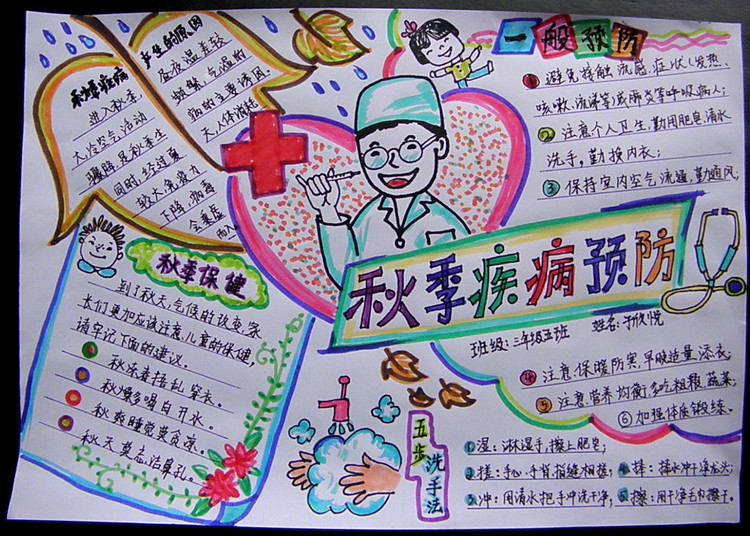 秋季疾病
进入秋季,
天冷空气活动
骤临,是秋季生
同时,经过夏
较大,免疫力
下降,病毒
会乘虚
而入
产生的原因
昼夜温差较
频繁,气温的
病的主要诱因。
天,人体消耗
一般预防
① 避免接触流感症状(发热、
咳嗽、流涕等)或肺炎等呼吸病人;
② 注意个人卫生,勤用肥皂、清水
洗手,勤换内衣;
③ 保持室内空气流通,勤通风;
秋季疾病预防
班级:三年级五班 姓名:于欣悦
④ 注意保暖防寒,早晚适量添衣;
⑤ 注意营养均衡,多吃粗粮、蔬菜;
⑥ 加强体质锻练。
秋季保健
到了秋天,气候的改变,家
长们更加应该注意儿童的保健,
请牢记下面的建议。
秋冻春捂乱穿衣。
秋燥多喝白开水。
秋爽睡觉莫贪凉。
秋天莫忘洁鼻孔。
五步洗手法
1.湿:淋湿手,擦上肥皂;
2.搓:手心、手背、指缝相搓,
3.冲:用清水把手冲洗干净,
4.捧:捧水冲干净龙头;
5.擦:用干净毛巾擦干。